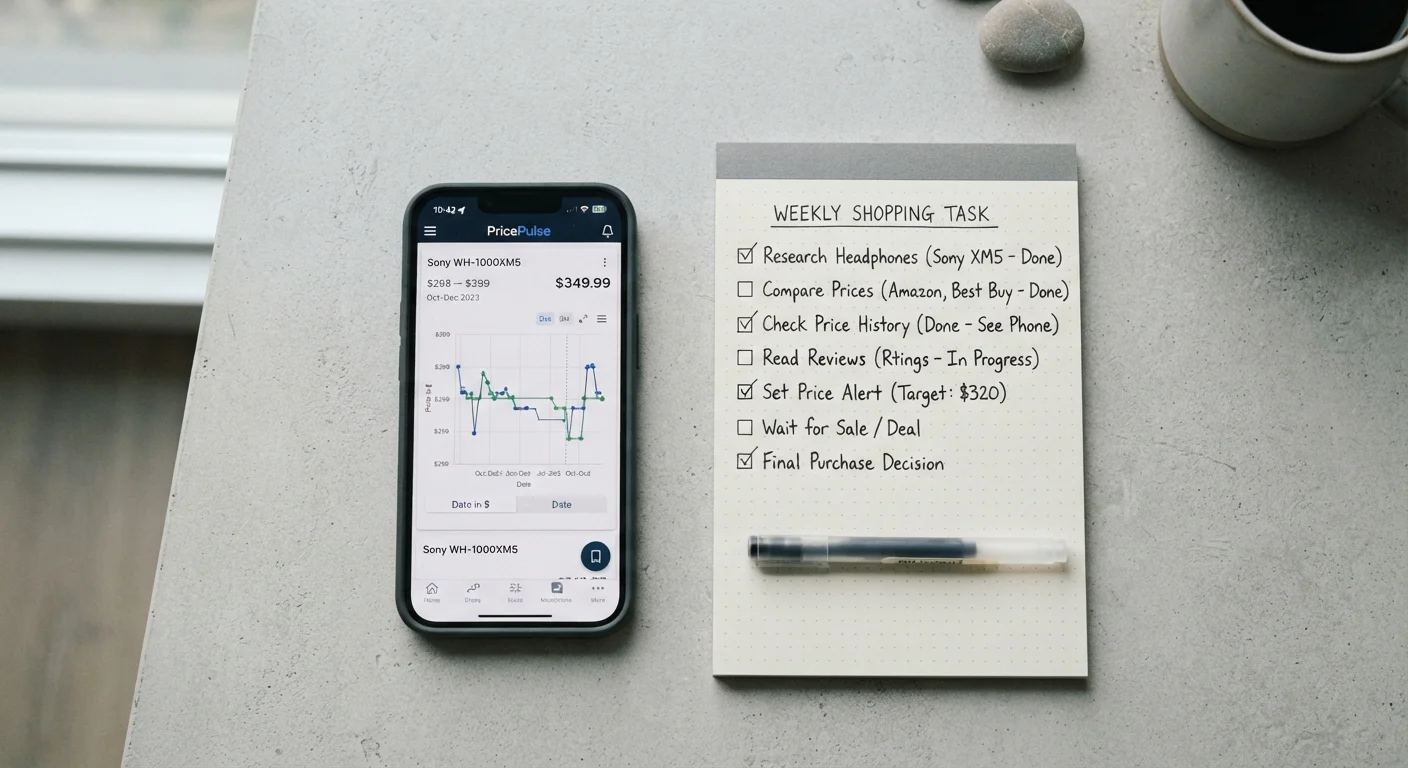 10:42
PricePulse
Sony WH-1000XM5
$298 — $399
$349.99
Oct-Dec 2023
$399
$299
$299
Date
Date in $
Date
Sony WH-1000XM5
WEEKLY SHOPPING TASK
☑ Research Headphones (Sony XM5 - Done)
☐ Compare Prices (Amazon, Best Buy - Done)
☑ Check Price History (Done - See Phone)
☐ Read Reviews (Rtings - In Progress)
☑ Set Price Alert (Target: $320)
☐ Wait for Sale / Deal
☑ Final Purchase Decision